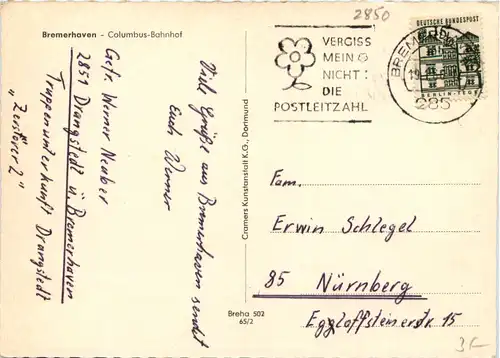 Bremerhaven - Columbus-Bahnhof
Gefr. Werner Neuber
2851 Drangstedt ü. Bremerhaven
Truppenunterkunft Drangstedt
"Zerstörer 2"
Viel Grüße aus Bremerhaven sendet
Euch Werner
Cramers Kunstanstalt K.G., Dortmund
Breha 502
65/2
2850
VERGISS
MEIN
NICHT:
DIE
POSTLEITZAHL
BREMERH
285
DEUTSCHE BUNDESPOST
BERLIN-TEGEL
Fam.
Erwin Schlegel
85 Nürnberg
Egglofsteinerstr. 15